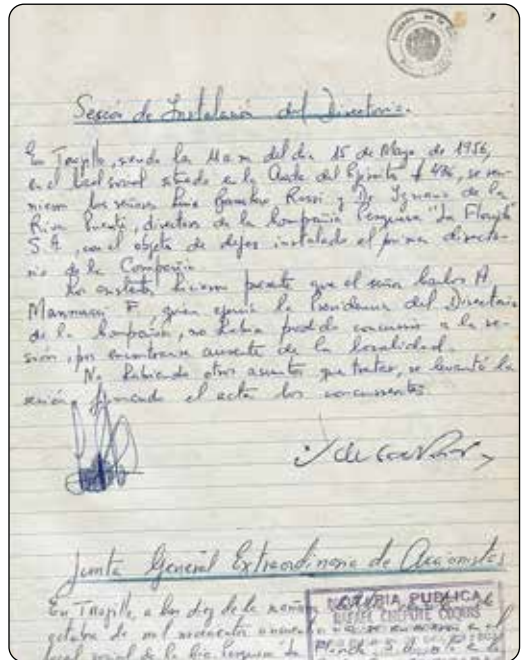 Sesión de Instalación del Directorio.
En Trujillo, siendo las 11 a.m. del día 15 de Mayo de 1956,
en el local social situado en la Avda del Ejército # 486, se reu-
nieron los señores Rossi y Dr. Ignacio de la
Riva directores de la Compañía Pesquera "La Florida"
S.A., con el objeto de dejar instalado el primer directo-
rio de la Compañía.
Los hicieron presente que el señor Carlos A.
Mannucci F., quien ejercía la Presidencia del Directorio
de la Compañía, no había podido concurrir a la se-
sión, por encontrarse ausente de la localidad.
No habiendo otros asuntos que tratar, se levantó la
sesión firmando el acta los concurrentes.
Junta General Extraordinaria de Accionistas
En Trujillo, a las diez de la mañana
octubre de mil novecientos
NOTARIA PUBLICA
RAFAEL CHEPOTE COQUIS
local social de la Cía. Pesquera